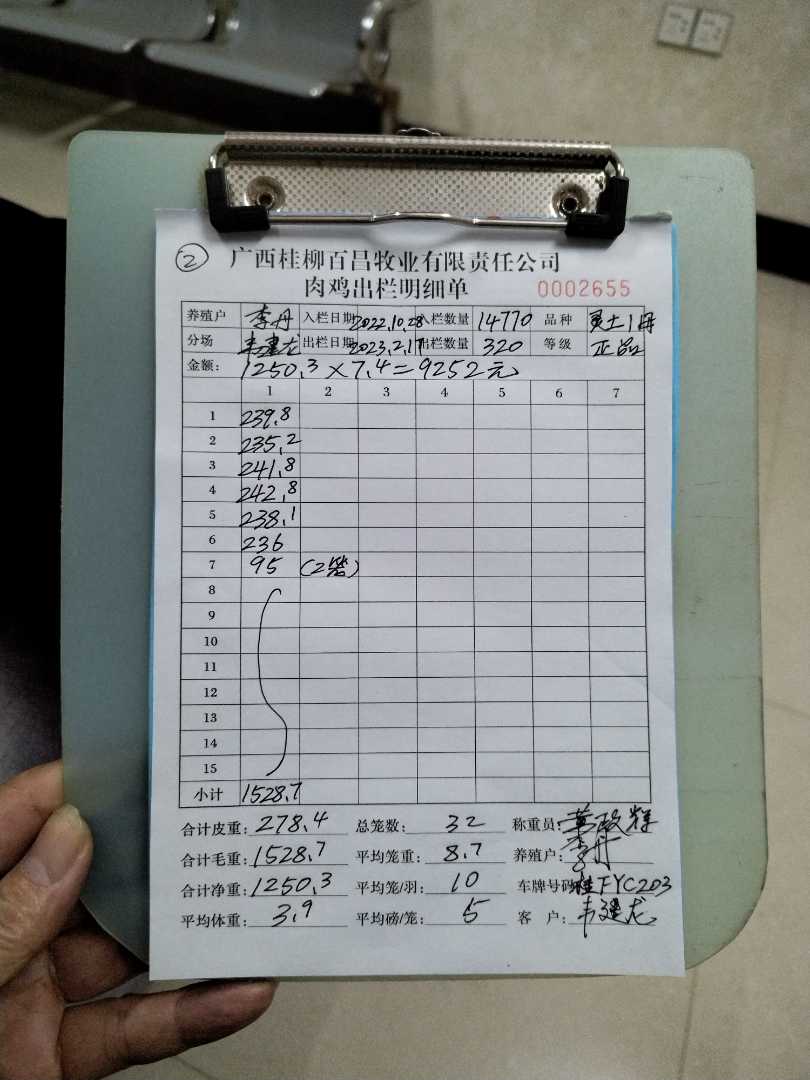 ② 广西桂柳百昌牧业有限责任公司
肉鸡出栏明细单 0002655
养殖户 李丹 入栏日期 2022.10.28 入栏数量 14770 品种
分场 韦建龙 出栏日期 2023.2.17 出栏数量 320 等级 正品
金额: 1250.3×7.4=9252元
1 2 3 4 5 6 7
1 239.8
2 235.2
3 241.8
4 242.8
5 238.1
6 236
7 95 (2笼)
8
9
10
11
12
13
14
15
小计 1528.7
合计皮重: 278.4 总笼数: 32 称重员:
合计毛重: 1528.7 平均笼重: 8.7 养殖户: 李丹
合计净重: 1250.3 平均笼/羽: 10 车牌号码: 桂FYC203
平均体重: 3.9 平均磅/笼: 5 客户: 韦建龙